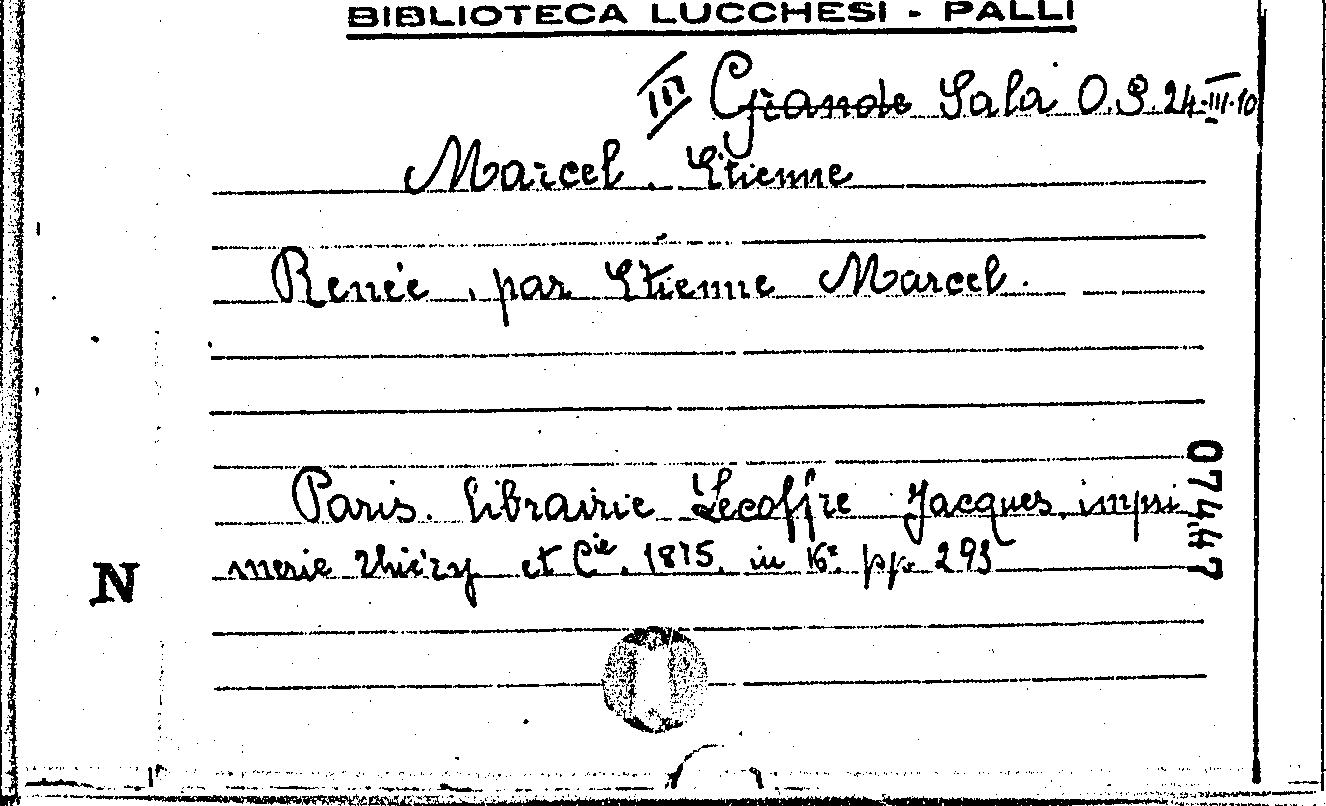 BIBLIOTECA LUCCHESI - PALLI
III Grande Sala O.S. 24-III-10
Marcel. Etienne
Renée, par Etienne Marcel.
Paris. librairie Lecoffre Jacques, impri
merie Thiézy et Cie. 1875. in 16° pp. 293
07447
N